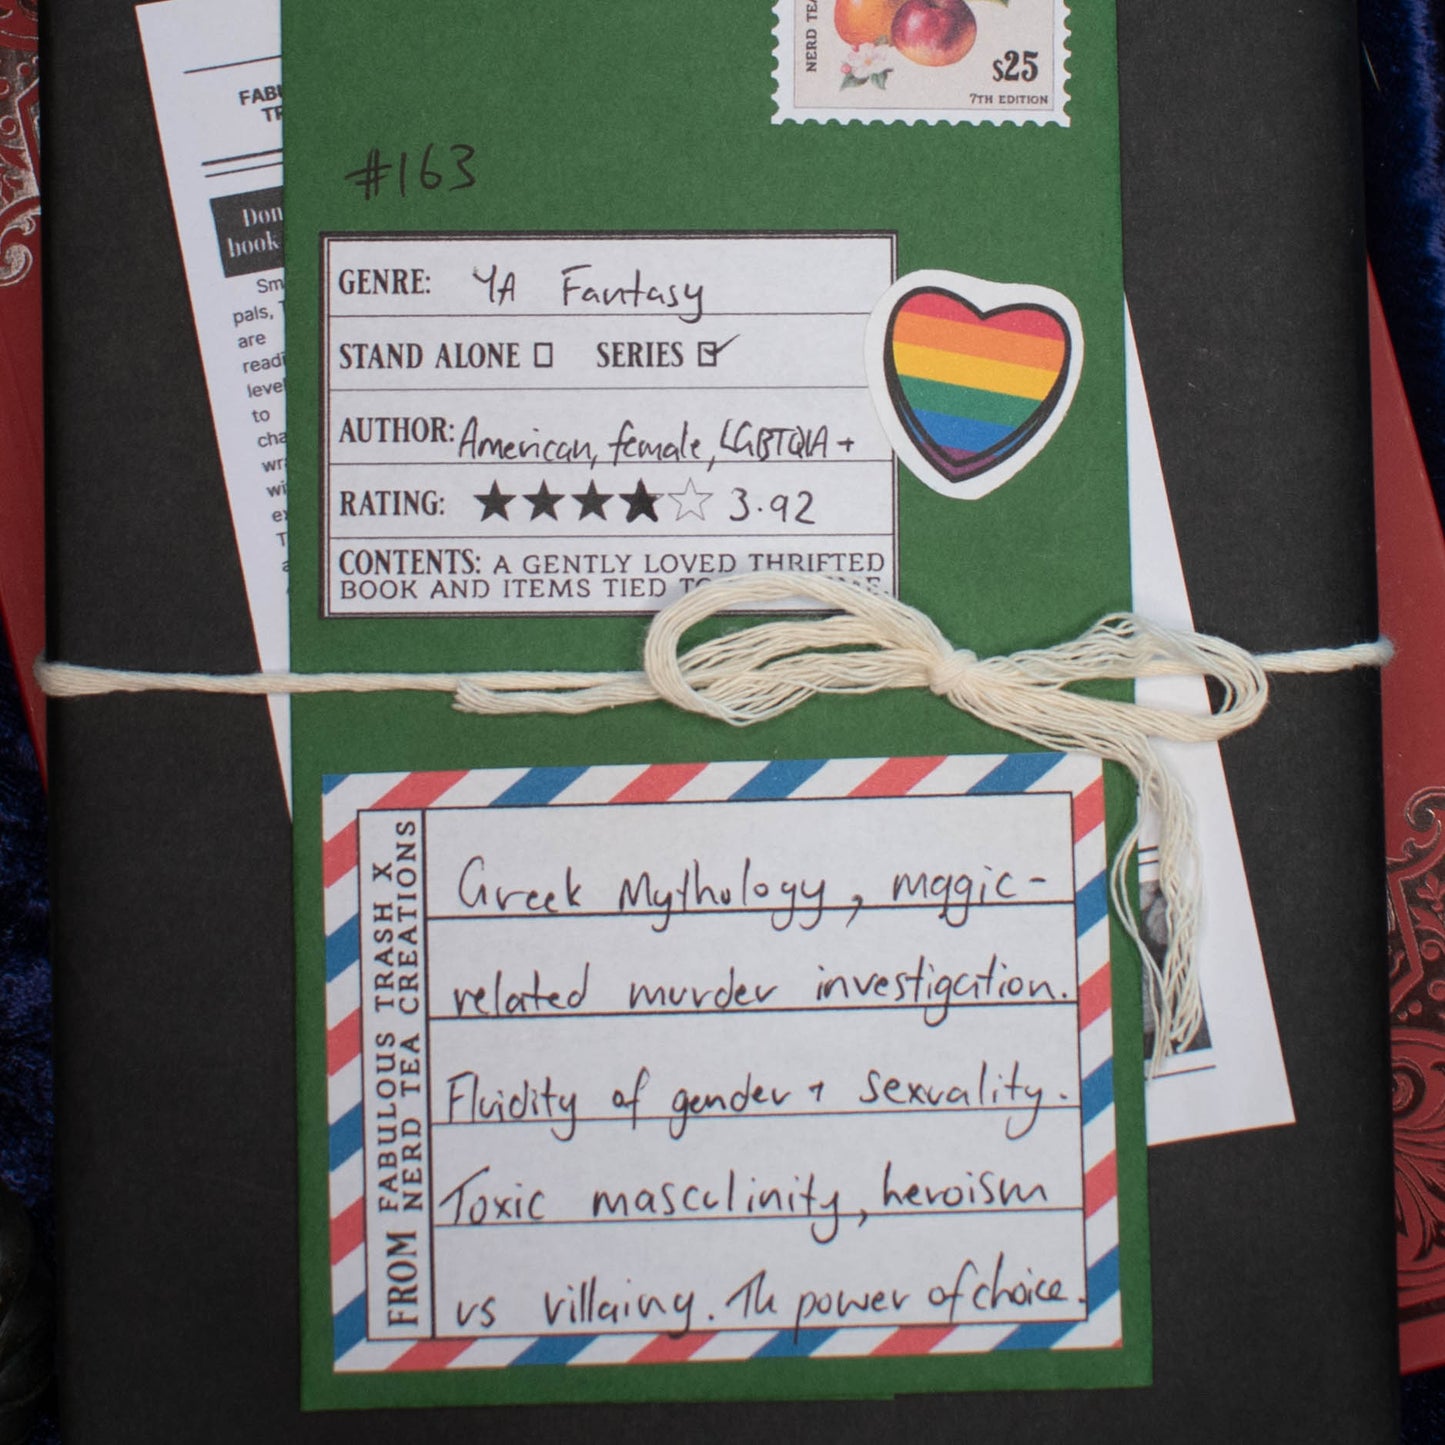 NERD TEA
$25
7TH EDITION
#163
FABU
TR
Don
book
Sm
pals, T
are
readi
level
to
cha
wr
wi
GENRE: YA Fantasy
STAND ALONE ☐ SERIES ☑
AUTHOR: American, female, LGBTQIA +
RATING: ★★★★☆ 3.92
CONTENTS: A GENTLY LOVED THRIFTED
BOOK AND ITEMS TIED
FROM FABULOUS TRASH X
NERD TEA CREATIONS
Greek Mythology, magic-
related murder investigation.
Fluidity of gender + sexuality.
Toxic masculinity, heroism
vs villainy. The power of choice.